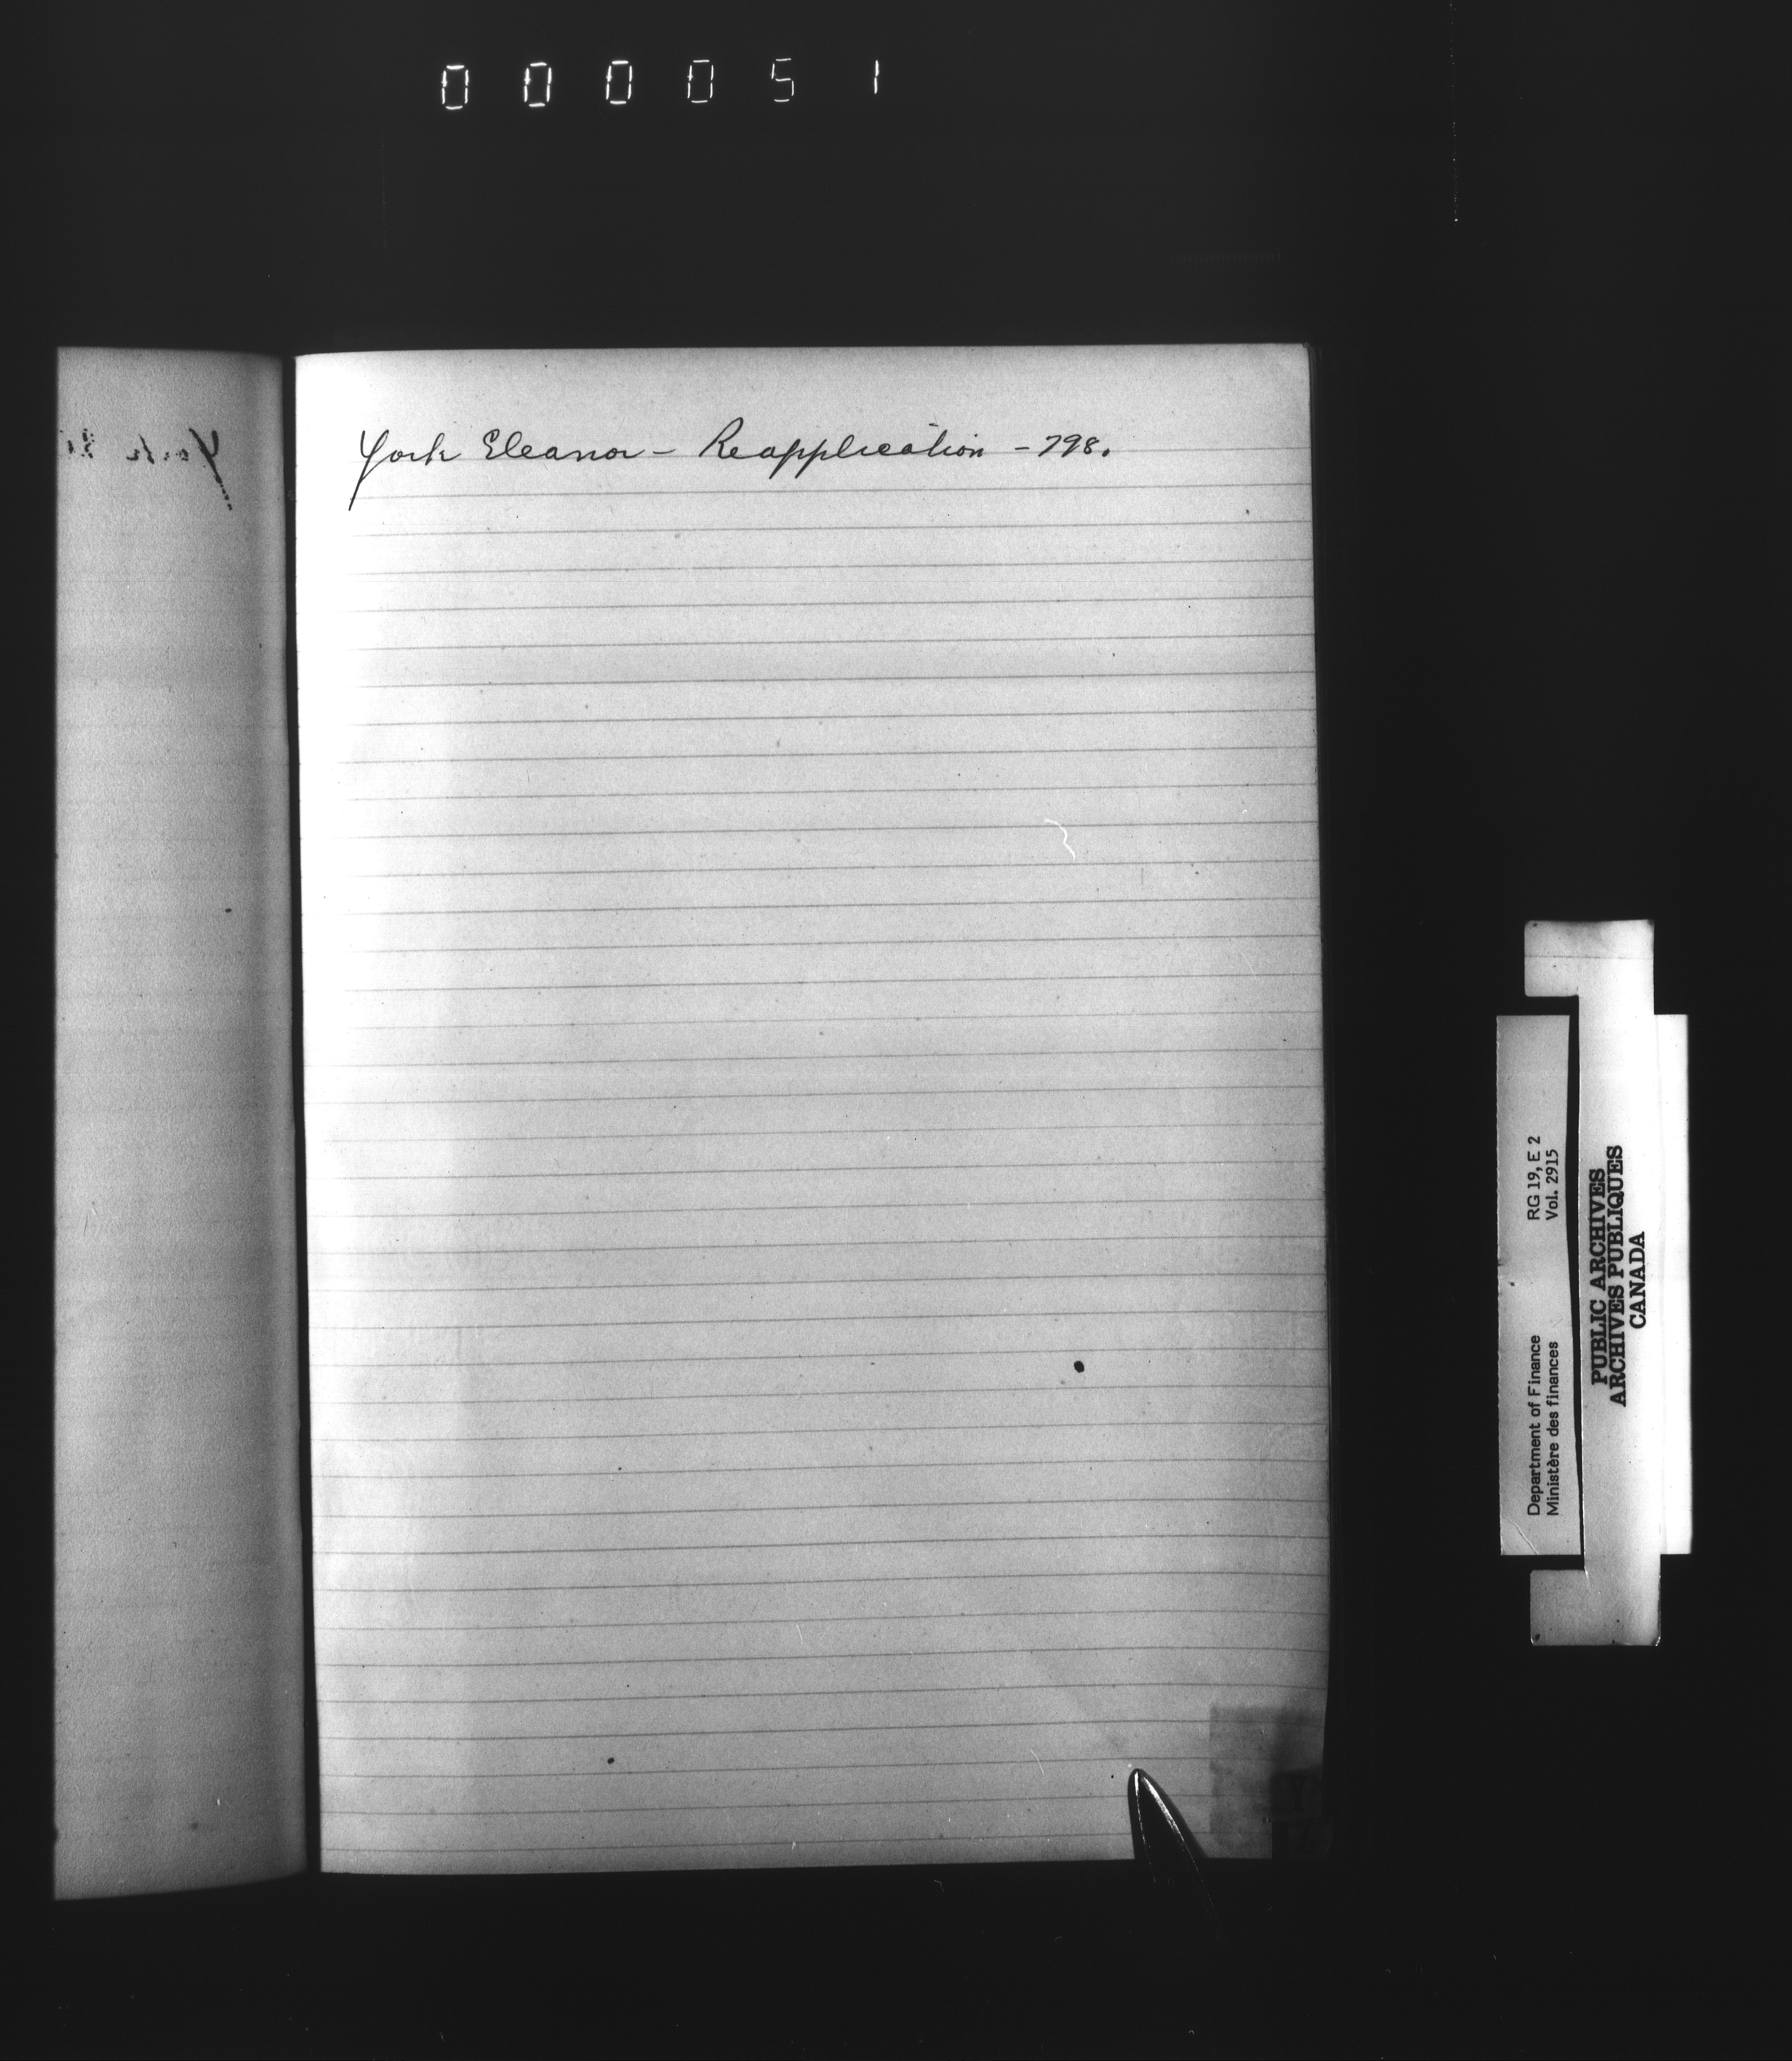 000051
York Eleanor - Reapplication - 798.
Department of Finance RG 19, E 2
Ministère des finances Vol. 2915
PUBLIC ARCHIVES
ARCHIVES PUBLIQUES
CANADA
Y